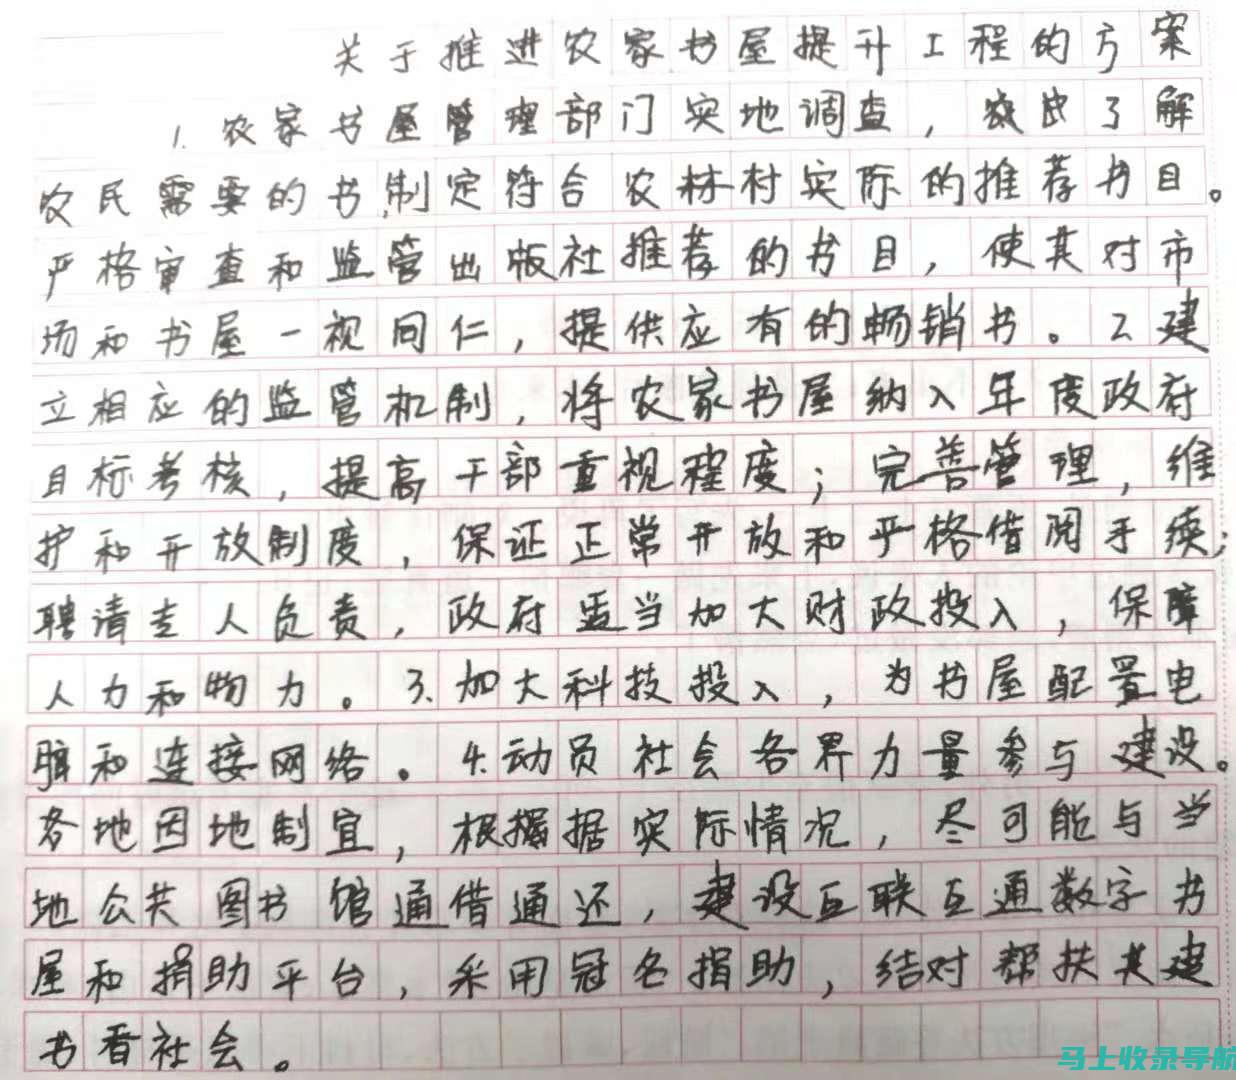 关于推进农家书屋提升工程的方案
1.农家书屋管理部门实地调查，了解
农民需要的书,制定符合农林村实际的推荐书目。
严格审查和监管出版社推荐的书目，使其对市
场和书屋一视同仁，提供应有的畅销书。2建
立相应的监管机制，将农家书屋纳入年度政府
目标考核，提高干部重视程度；完善管理，维
护和开放制度，保证正常开放和严格借阅手续；
聘请专人负责，政府适当加大财政投入，保障
人力和物力。3.加大科技投入，为书屋配置电
脑和连接网络。4.动员社会各界力量参与建设。
各地因地制宜，根据实际情况，尽可能与当
地公共图书馆通借通还，建设互联互通数字书
屋和捐助平台，采用冠名捐助，结对帮扶共建
书香社会。
马上收录导航